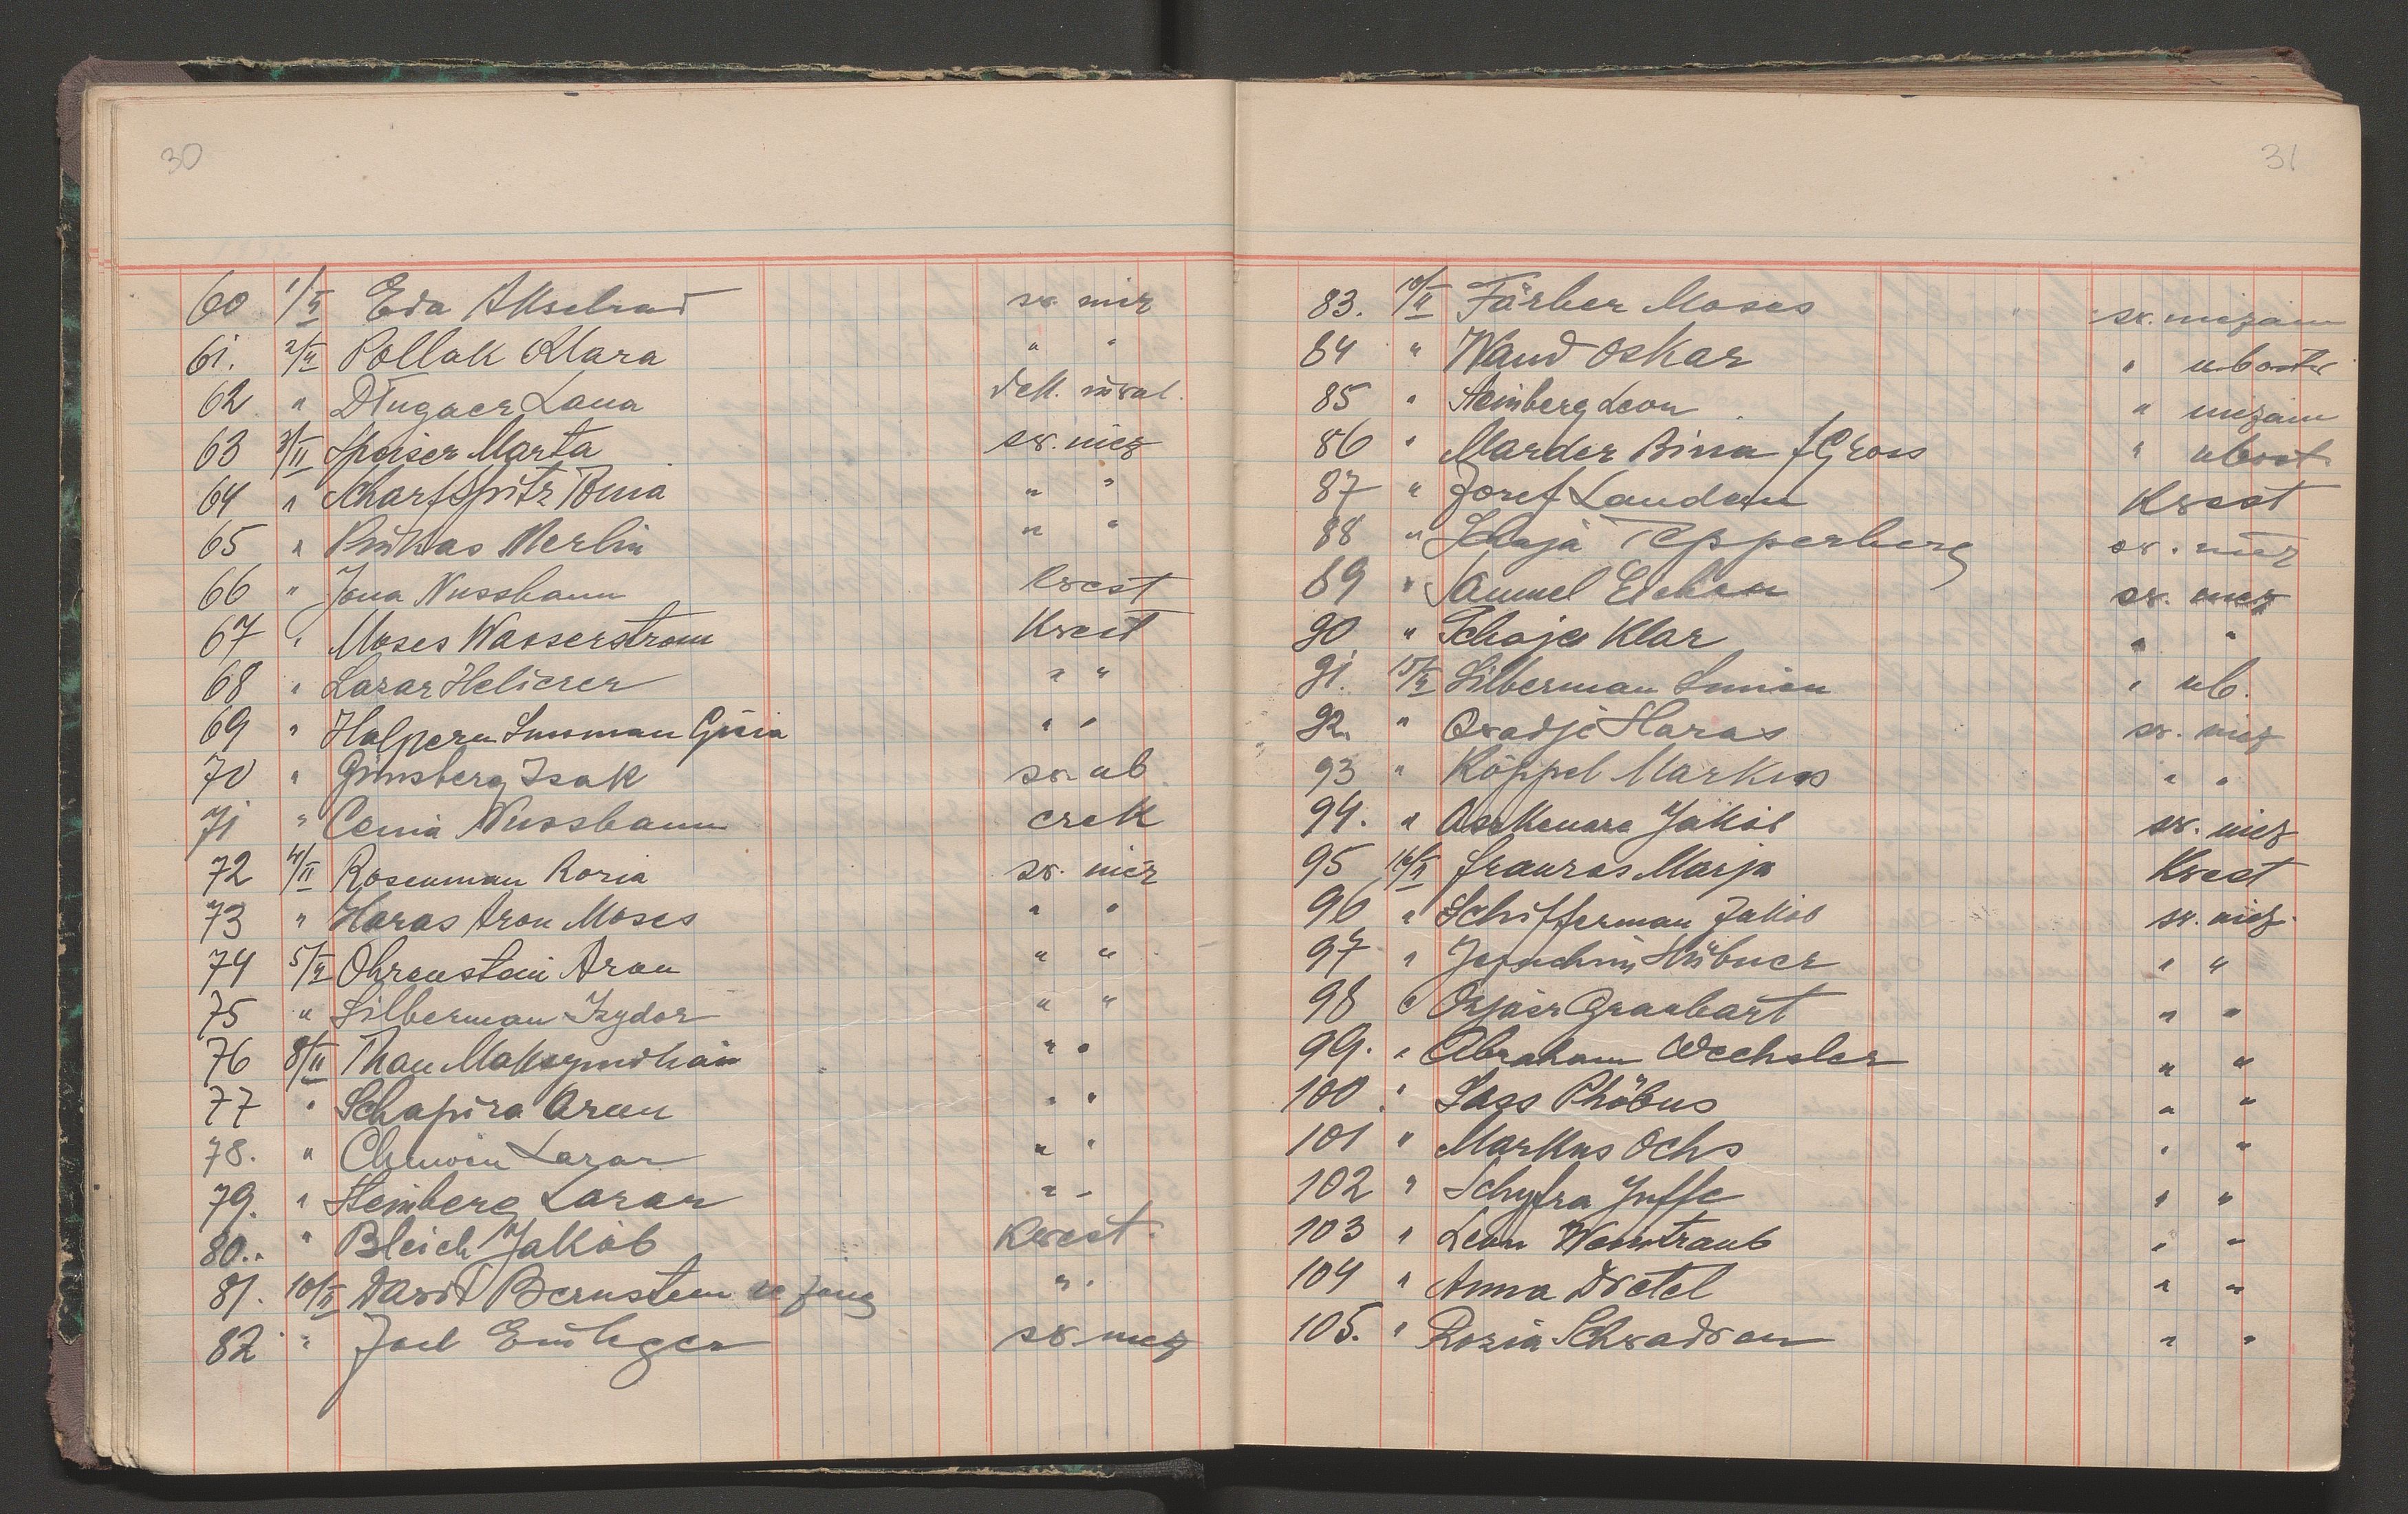 30
60 1/II Eda Akselrad św. niez
61. 2/II Pollak Klara " "
62 " Długacz Lana dekl. inwal.
63 3/II Speiser Marta św. niez
64 " Scharfspitz Tonia " "
65 " Pinkas Merlin " "
66 " Jona Nussbaum kwest
67 " Moses Wasserstrom Kwest
68 " Lazar Heliczer " "
69 " Halpern Sussman Gisia " "
70 " Ginsberg Izak św. ub
71 " Cenia Nussbaum czek
72 4/II Rosenman Rozia św. niez
73 " Haras Aron Moses " "
74 5/II Ohrenstein Aron " "
75 " Silberman Izydor " "
76 8/II Thau Maksymilian " "
77 " Schapira Aron " "
78. " Chuwin Lazar " "
79. " Steinberg Lazar " "
80.. " Bleich Jakób Kwest.
81. 10/II Dawid Bernstein " "
82 " Joel Einleger św. niez
31
83. 10/II Färber Moses św. niezam
84 " Wand Oskar " ubostw
85 " Steinberg Leon " niezam
86 " Marder Bina f Gross " ubost
87 " Josef Landau Kwest
88 " Schaja Tepperberg św. niez
89 " Samuel Eichen św. niez
90 " Schoje Klar " "
91. 15/II Silberman Simion " ub.
92. " Owadje Haras św. niez
93 " Köppel Markus " "
94. " Aszkenaze Jakób św. niez
95 16/II Franzos Marja Kwest
96 " Schifferman Jakób św. niez
97 " Joachim Hübner " "
98 " Ozjasz Graubart " "
99. " Abraham Wechsler " "
100 " Sass Phöbus " "
101 " Markus Ochs " "
102 " Schyfra Juffe " "
103 " Leon Weintraub " "
104 " Anna Dretel " "
105. " Rozia Schwadron " "